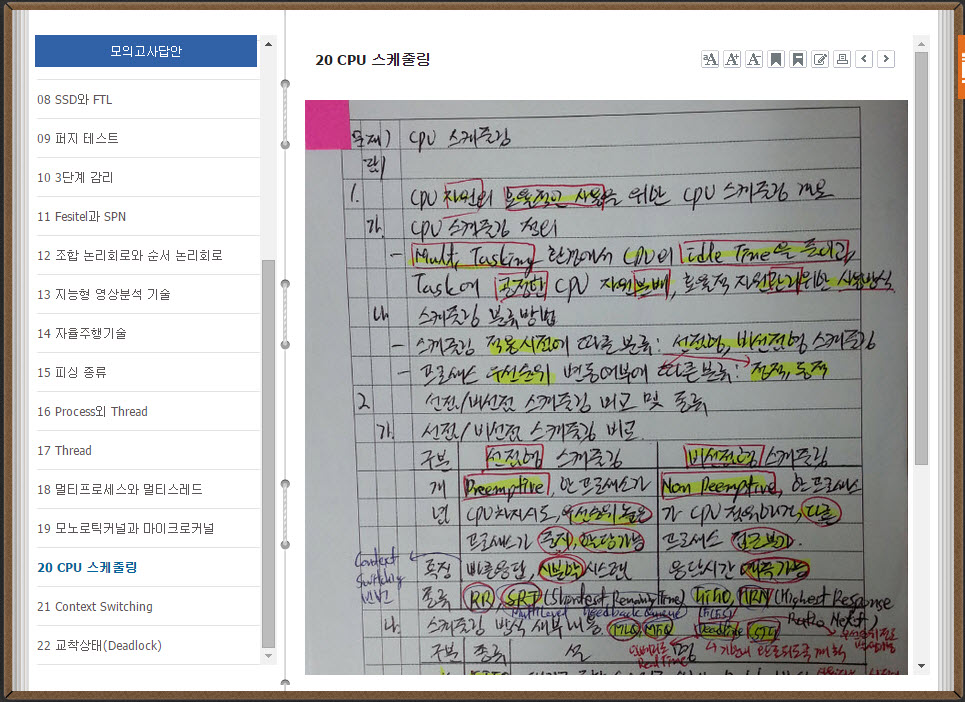 모의고사답안
08 SSD와 FTL
09 퍼지 테스트
10 3단계 감리
11 Fesitel과 SPN
12 조합 논리회로와 순서 논리회로
13 지능형 영상분석 기술
14 자율주행기술
15 피싱 종류
16 Process와 Thread
17 Thread
18 멀티프로세스와 멀티스레드
19 모노로틱커널과 마이크로커널
20 CPU 스케줄링
21 Context Switching
22 교착상태(Deadlock)
20 CPU 스케줄링
문제) CPU 스케줄링
답)
1. CPU 자원의 효율적인 사용을 위한 CPU 스케줄링 개요
가. CPU 스케줄링 정의
- Multi Tasking 환경에서 CPU의 idle Time을 줄이고,
Task에 공정한 CPU 자원분배, 효율적 자원관리 위한 사용방식
나. 스케줄링 분류방법
- 스케줄링 적용시점에 따른 분류: 선점형, 비선점형 스케줄링
- 프로세스 우선순위 변동여부에 따른 분류: 정적, 동적
2. 선점/비선점 스케줄링 비교 및 종류
가. 선점/비선점 스케줄링 비교
구분 선점형 스케줄링 비선점형 스케줄링
개 Preemptive, 한 프로세스가 Non Peemptive, 한 프로세스
념 CPU 차지시도, 우선순위 높은 가 CPU 점유하면, 다른
프로세스가 중지, 할당가능 프로세스 접근불가.
Context Switching
특징 빠른응답, 시분할시스템 응답시간 예측가능
종류 RR, SRT (Shortest Remaining Time) FIFO, HRN (Highest Response
Ratio Next)
MultiLevel Feedback Queue (FCFS)
나. 스케줄링 방식 세부내용 MLQ, MFQ Deadline SJF
구분 종류 설
Real Time